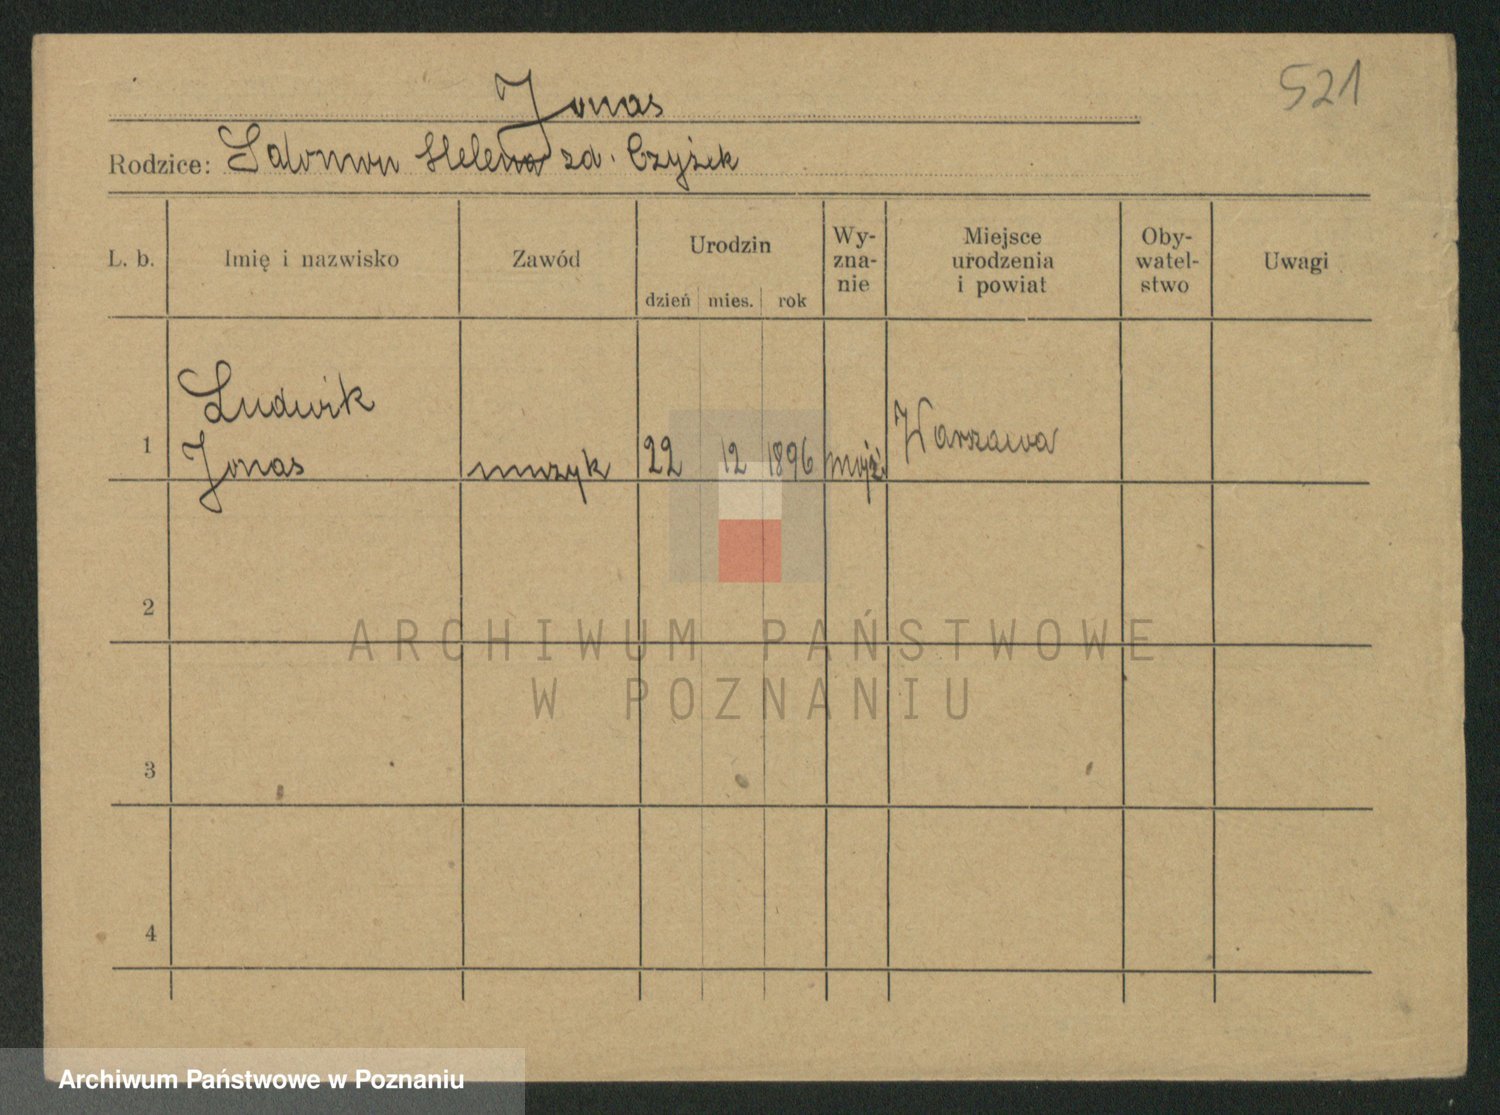 521
Jonas
Rodzice: Salomon Helena zd. Czyżek
L. b.
Imię i nazwisko
Zawód
Urodzin
dzień mies. rok
Wy-
zna-
nie
Miejsce
urodzenia
i powiat
Oby-
watel-
stwo
Uwagi
1 Ludwik
Jonas muzyk 22 12 1896 mojż Warszawa
2
3
4
ARCHIWUM PAŃSTWOWE
W POZNANIU
Archiwum Państwowe w Poznaniu